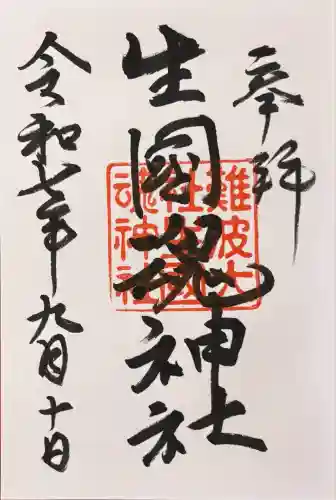 奉拝
生國魂神社
難波大社生國魂神社
令和七年九月十日